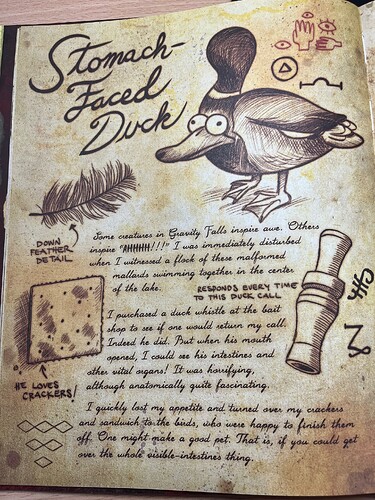 Stomach-
Faced
Duck
DOWN
FEATHER
DETAIL
Some creatures in Gravity Falls inspire awe. Others
inspire "AHHHHH!!!" I was immediately disturbed
when I witnessed a flock of these malformed
mallards swimming together in the center
of the lake.
RESPONDS EVERY TIME
TO THIS DUCK CALL
I purchased a duck whistle at the bait
shop to see if one would return my call.
Indeed he did. But when his mouth
opened, I could see his intestines and
other vital organs! It was horrifying,
although anatomically quite fascinating.
HE LOVES
CRACKERS!
I quickly lost my appetite and turned over my crackers
and sandwich to the birds, who were happy to finish them
off. One might make a good pet. That is, if you could get
over the whole visible-intestines thing.